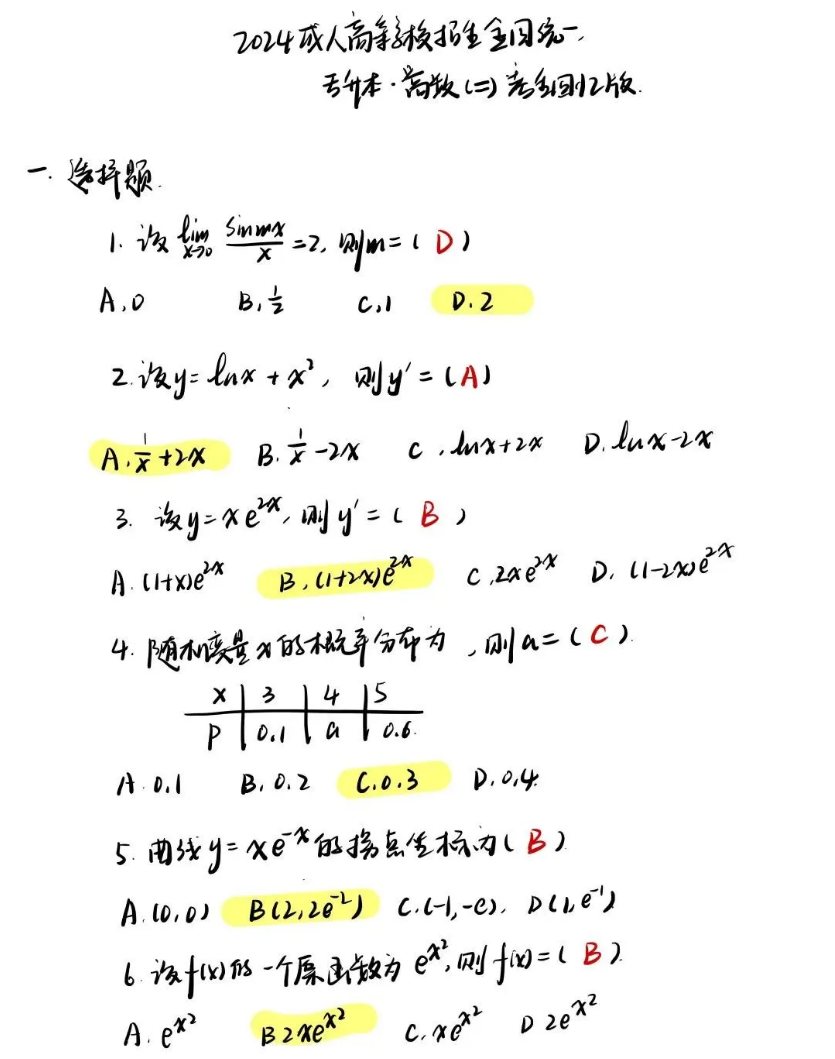 2024成人高等学校招生全国统一
专升本·高数(二)考生回忆版
一.选择题.
1.设 lim x→0 sinmx/x =2,则m=( D )
A.0 B.1/2 C.1 D.2
2.设y=lnx+x², 则y′=(A)
A.1/x+2x B.1/x-2x C.lnx+2x D.lnx-2x
3.设y=xe^2x,则y′=( B )
A.(1+x)e^2x B.(1+2x)e^2x C.2xe^2x D.(1-2x)e^2x
4.随机变量x的概率分布为,则a=(C).
x 3 4 5
P 0.1 a 0.6
A.0.1 B.0.2 C.0.3 D.0.4
5.曲线y=xe^-x的拐点坐标为(B)
A.(0,0) B(2,2e^-2) C.(-1,-e). D(1,e^-1)
6.设f(x)的一个原函数为e^x²,则f(x)=(B)
A.e^x² B 2xe^x² C.xe^x² D 2e^x²